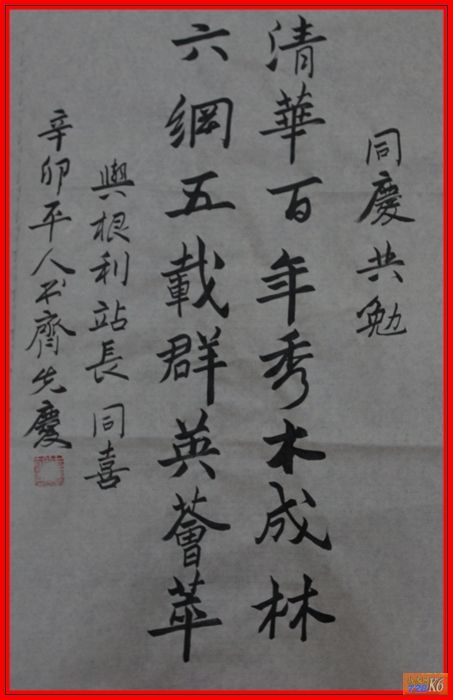 同慶共勉
清華百年秀木成林
六綱五載群英薈萃
與根利站長同喜
辛卯平人不齊先慶
728 K6